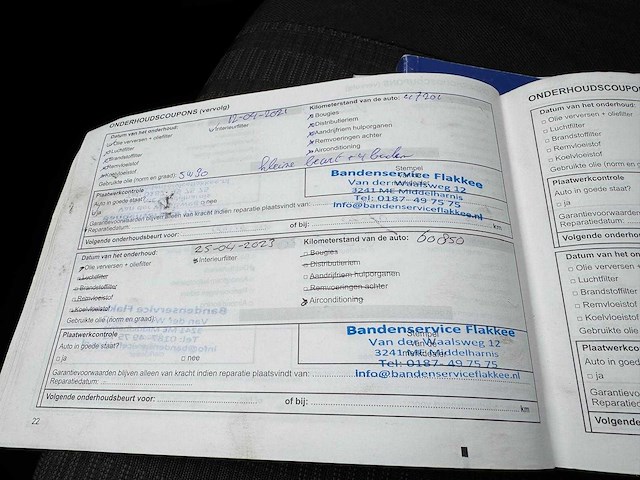 ONDERHOUDSCOUPONS (vervolg)
Datum van het onderhoud: 12-04-2021
Kilometerstand van de auto: 47201
Olie verversen + oliefilter
Interieurfilter
Bougies
Luchtfilter
Distributieriem
Brandstoffilter
Aandrijfriem hulporganen
Remvloeistof
Remvoeringen achter
Koelvloeistof
Airconditioning
Gebruikte olie (norm en graad) 5W30
kleine beurt + 4 banden
Plaatwerkcontrole
Stempel
Bandenservice Flakkee
Auto in goede staat?
Van der Waalsweg 12
ja
nee
3241 ME Middelharnis
Tel: 0187- 49 75 75
Garantievoorwaarden blijven alleen van kracht indien reparatie plaatsvindt van:
Info@bandenserviceflakkee.nl
Reparatiedatum:
Volgende onderhoudsbeurt voor:
of bij:
km
Datum van het onderhoud: 25-04-2023
Kilometerstand van de auto: 60850
Olie verversen + oliefilter
Interieurfilter
Bougies
Luchtfilter
Distributieriem
Brandstoffilter
Aandrijfriem hulporganen
Remvloeistof
Remvoeringen achter
Koelvloeistof
Airconditioning
Gebruikte olie (norm en graad)
Plaatwerkcontrole
Bandenservice Flakkee
Auto in goede staat?
Van der Waalsweg 12
ja
nee
3241 ME Middelharnis
Tel: 0187- 49 75 75
Garantievoorwaarden blijven alleen van kracht indien reparatie plaatsvindt van:
Info@bandenserviceflakkee.nl
Reparatiedatum:
Volgende onderhoudsbeurt voor:
of bij:
km
22
ONDERHOUDSCOUPONS
Datum van het onderhoud:
Olie verversen + oliefilter
Luchtfilter
Brandstoffilter
Remvloeistof
Koelvloeistof
Gebruikte olie (norm
Plaatwerkcontrole
Auto in goede staat?
ja
Garantievoorwaarden
Reparatiedatum:
Volgende onderhoud
Datum van het
Olie verversen +
Luchtfilter
Brandstoffilter
Remvloeistof
Koelvloeistof
Gebruikte olie
Plaatwerkco
Auto in goed
ja
Garantievo
Reparatied
Volgende